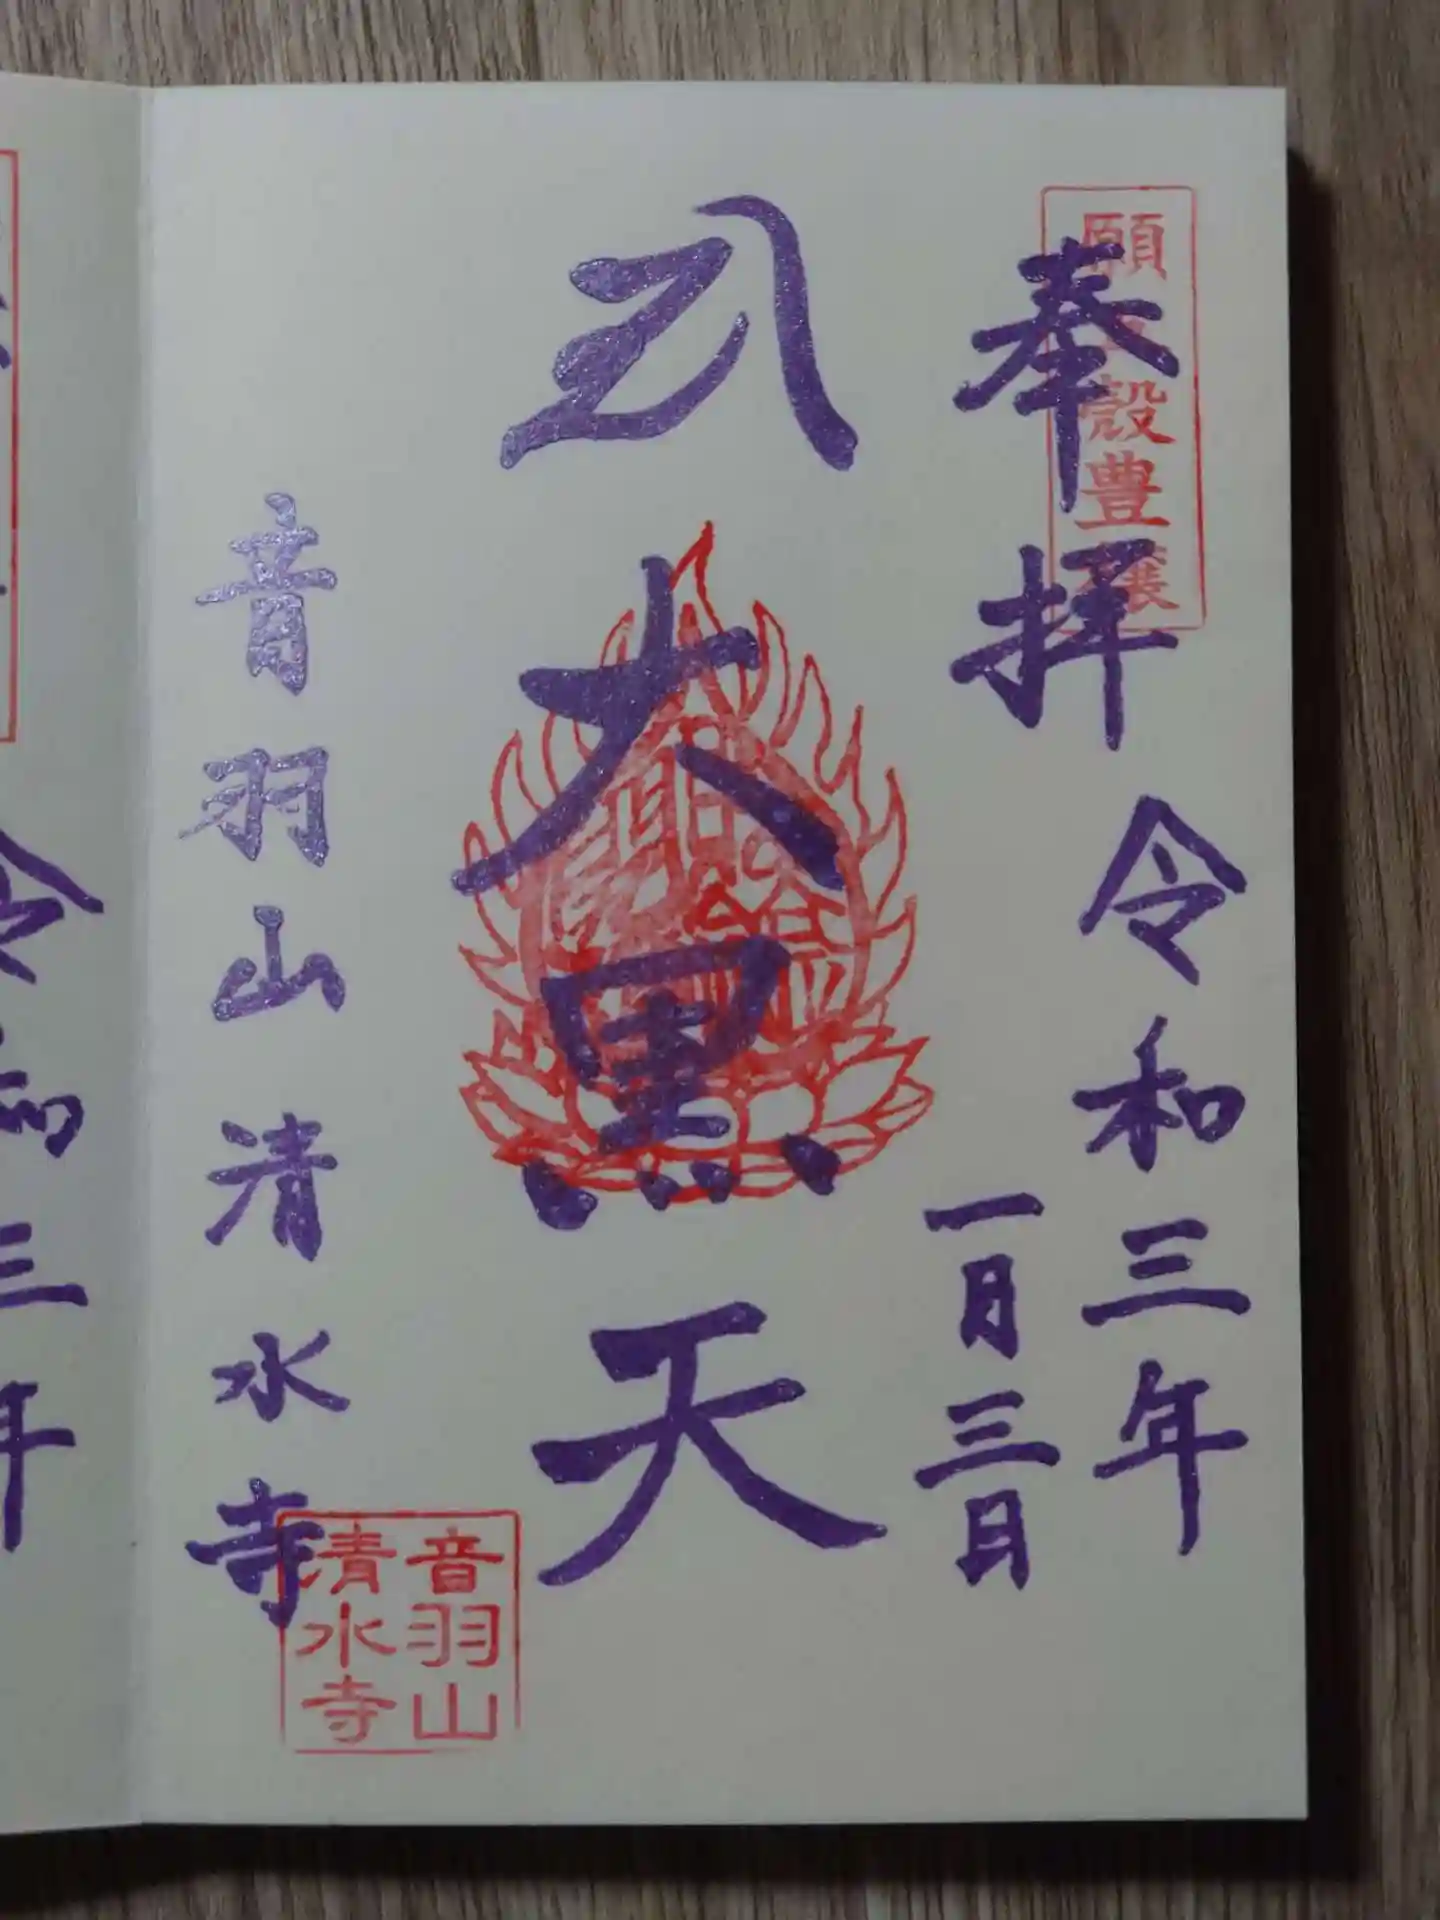 奉拝
令和三年
一月三日
大黒天
音羽山清水寺
願
穀豊穣
音羽山
清水寺
令和三年